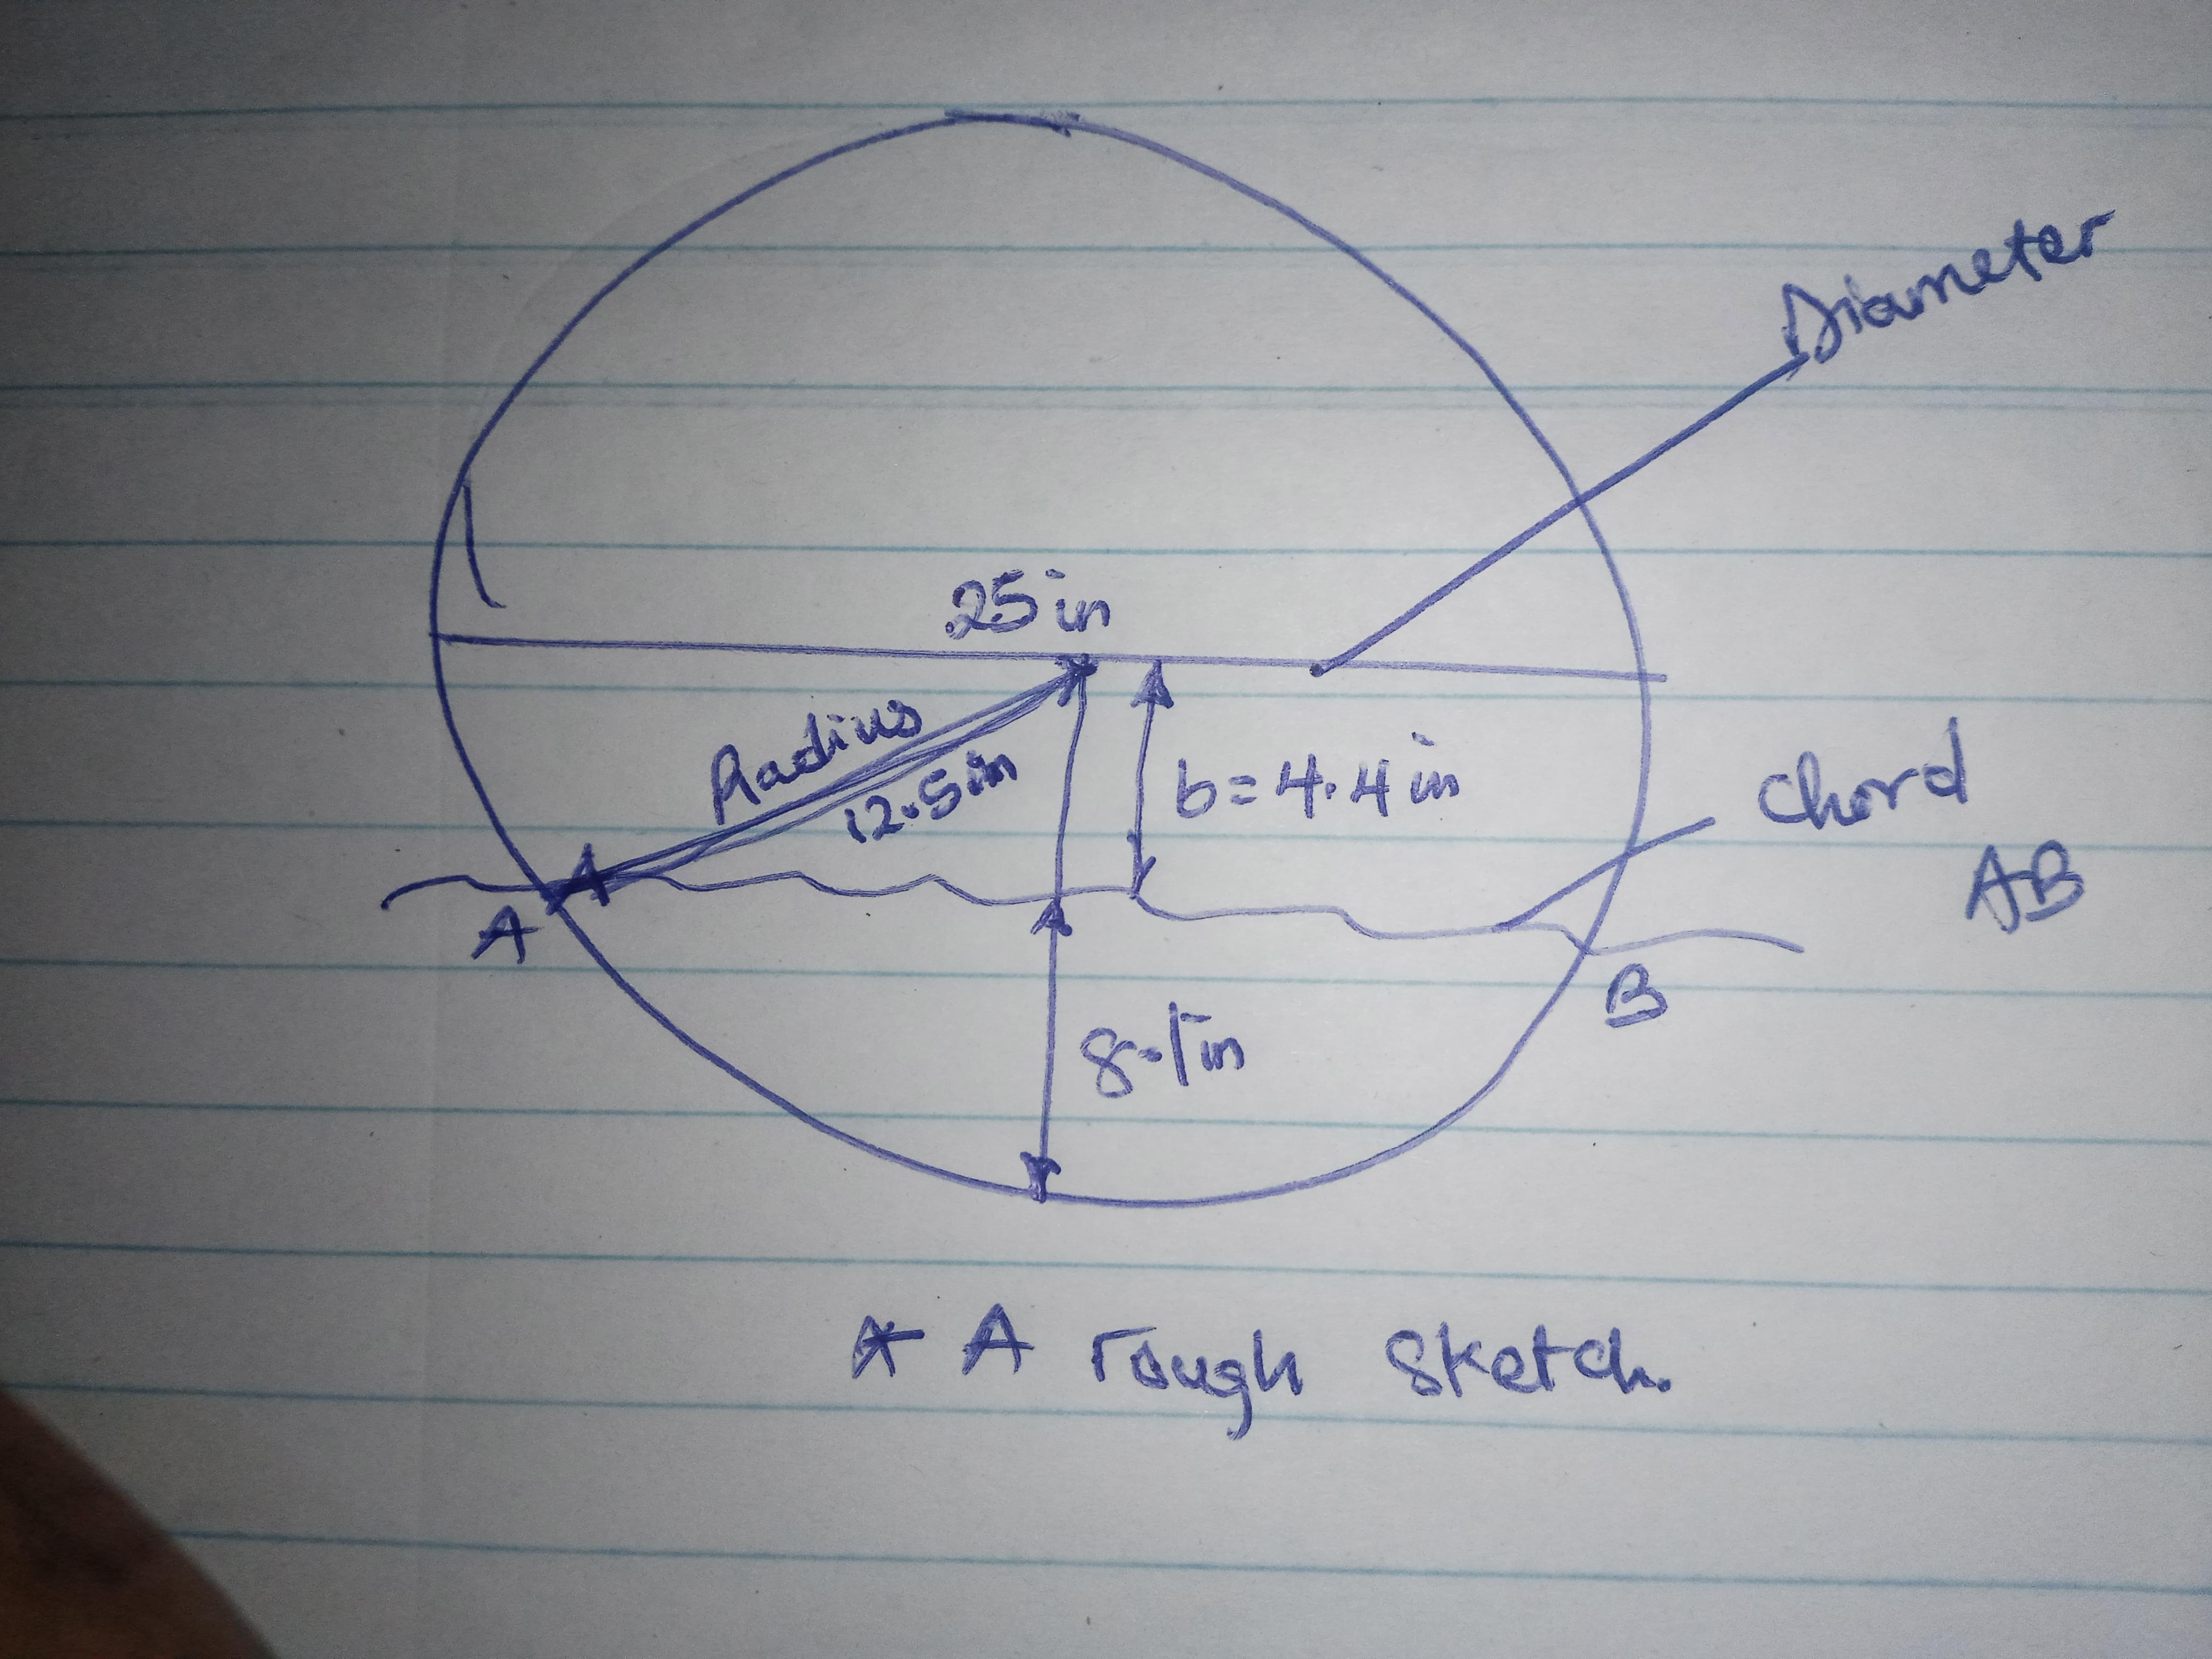 Diameter
25in
Radius
12.5in
b=4.4in
Chord
AB
A
B
8.1in
* A rough sketch.